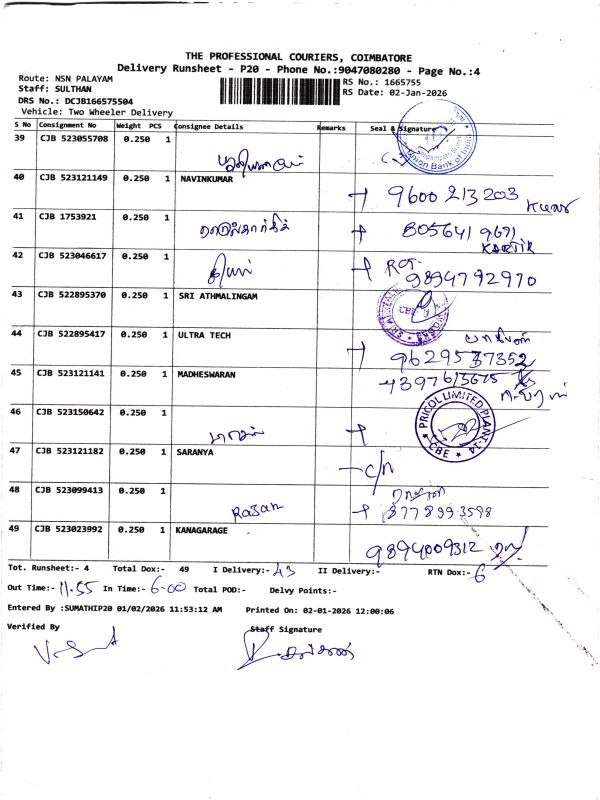 THE PROFESSIONAL COURIERS, COIMBATORE
Delivery Runsheet - P20 - Phone No.:9047080280 - Page No.:4
Route: NSN PALAYAM RS No.: 1665755
Staff: SULTHAN RS Date: 02-Jan-2026
DRS No.: DCJB166575504
Vehicle: Two Wheeler Delivery
S No Consignment No Weight PCS Consignee Details Remarks Seal & Signature
39 CJB 523055708 0.250 1
Union Bank of India
40 CJB 523121149 0.250 1 NAVINKUMAR
9600 213203
41 CJB 1753921 0.250 1
805641 9671
KARTIK
42 CJB 523046617 0.250 1
9894792970
43 CJB 522895370 0.250 1 SRI ATHMALINGAM
CBE
44 CJB 522895417 0.250 1 ULTRA TECH
9629537352
45 CJB 523121141 0.250 1 MADHESWARAN
46 CJB 523150642 0.250 1
PRICOL LIMITED PLANT-14
CBE
47 CJB 523121182 0.250 1 SARANYA
C/n
48 CJB 523099413 0.250 1
Rajan
8778993598
49 CJB 523023992 0.250 1 KANAGARAGE
9894009312
Tot. Runsheet:- 4 Total Dox:- 49 I Delivery:- 43 II Delivery:- RTN Dox:- 6
Out Time:- 11.55 In Time:- 6-00 Total POD:- Delvy Points:-
Entered By :SUMATHIP20 01/02/2026 11:53:12 AM Printed On: 02-01-2026 12:00:06
Verified By Staff Signature